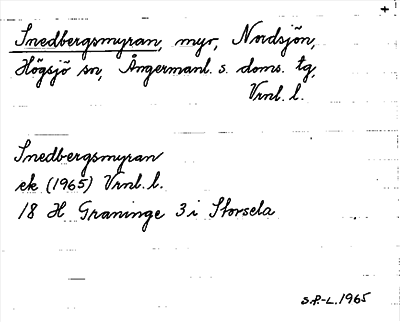 Snedbergsmyran, myr, Nordsjön,
Högsjö sn, Ångermanl. s. doms. tg,
Vrnl. l.
Snedbergsmyran
ek (1965) Vrnl. l.
18 H Graninge 3 i Storsela
S.P.-L. 1965